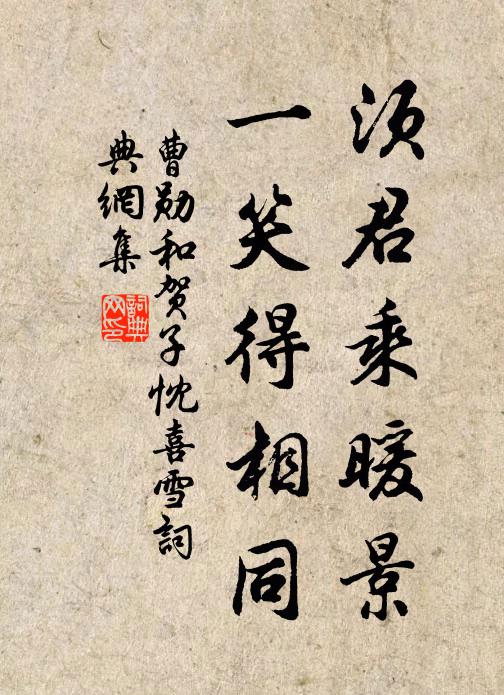 須君乘暖景
一笑得相同
曹勛和贺子忱喜雪詞
典網集
詞典
网印